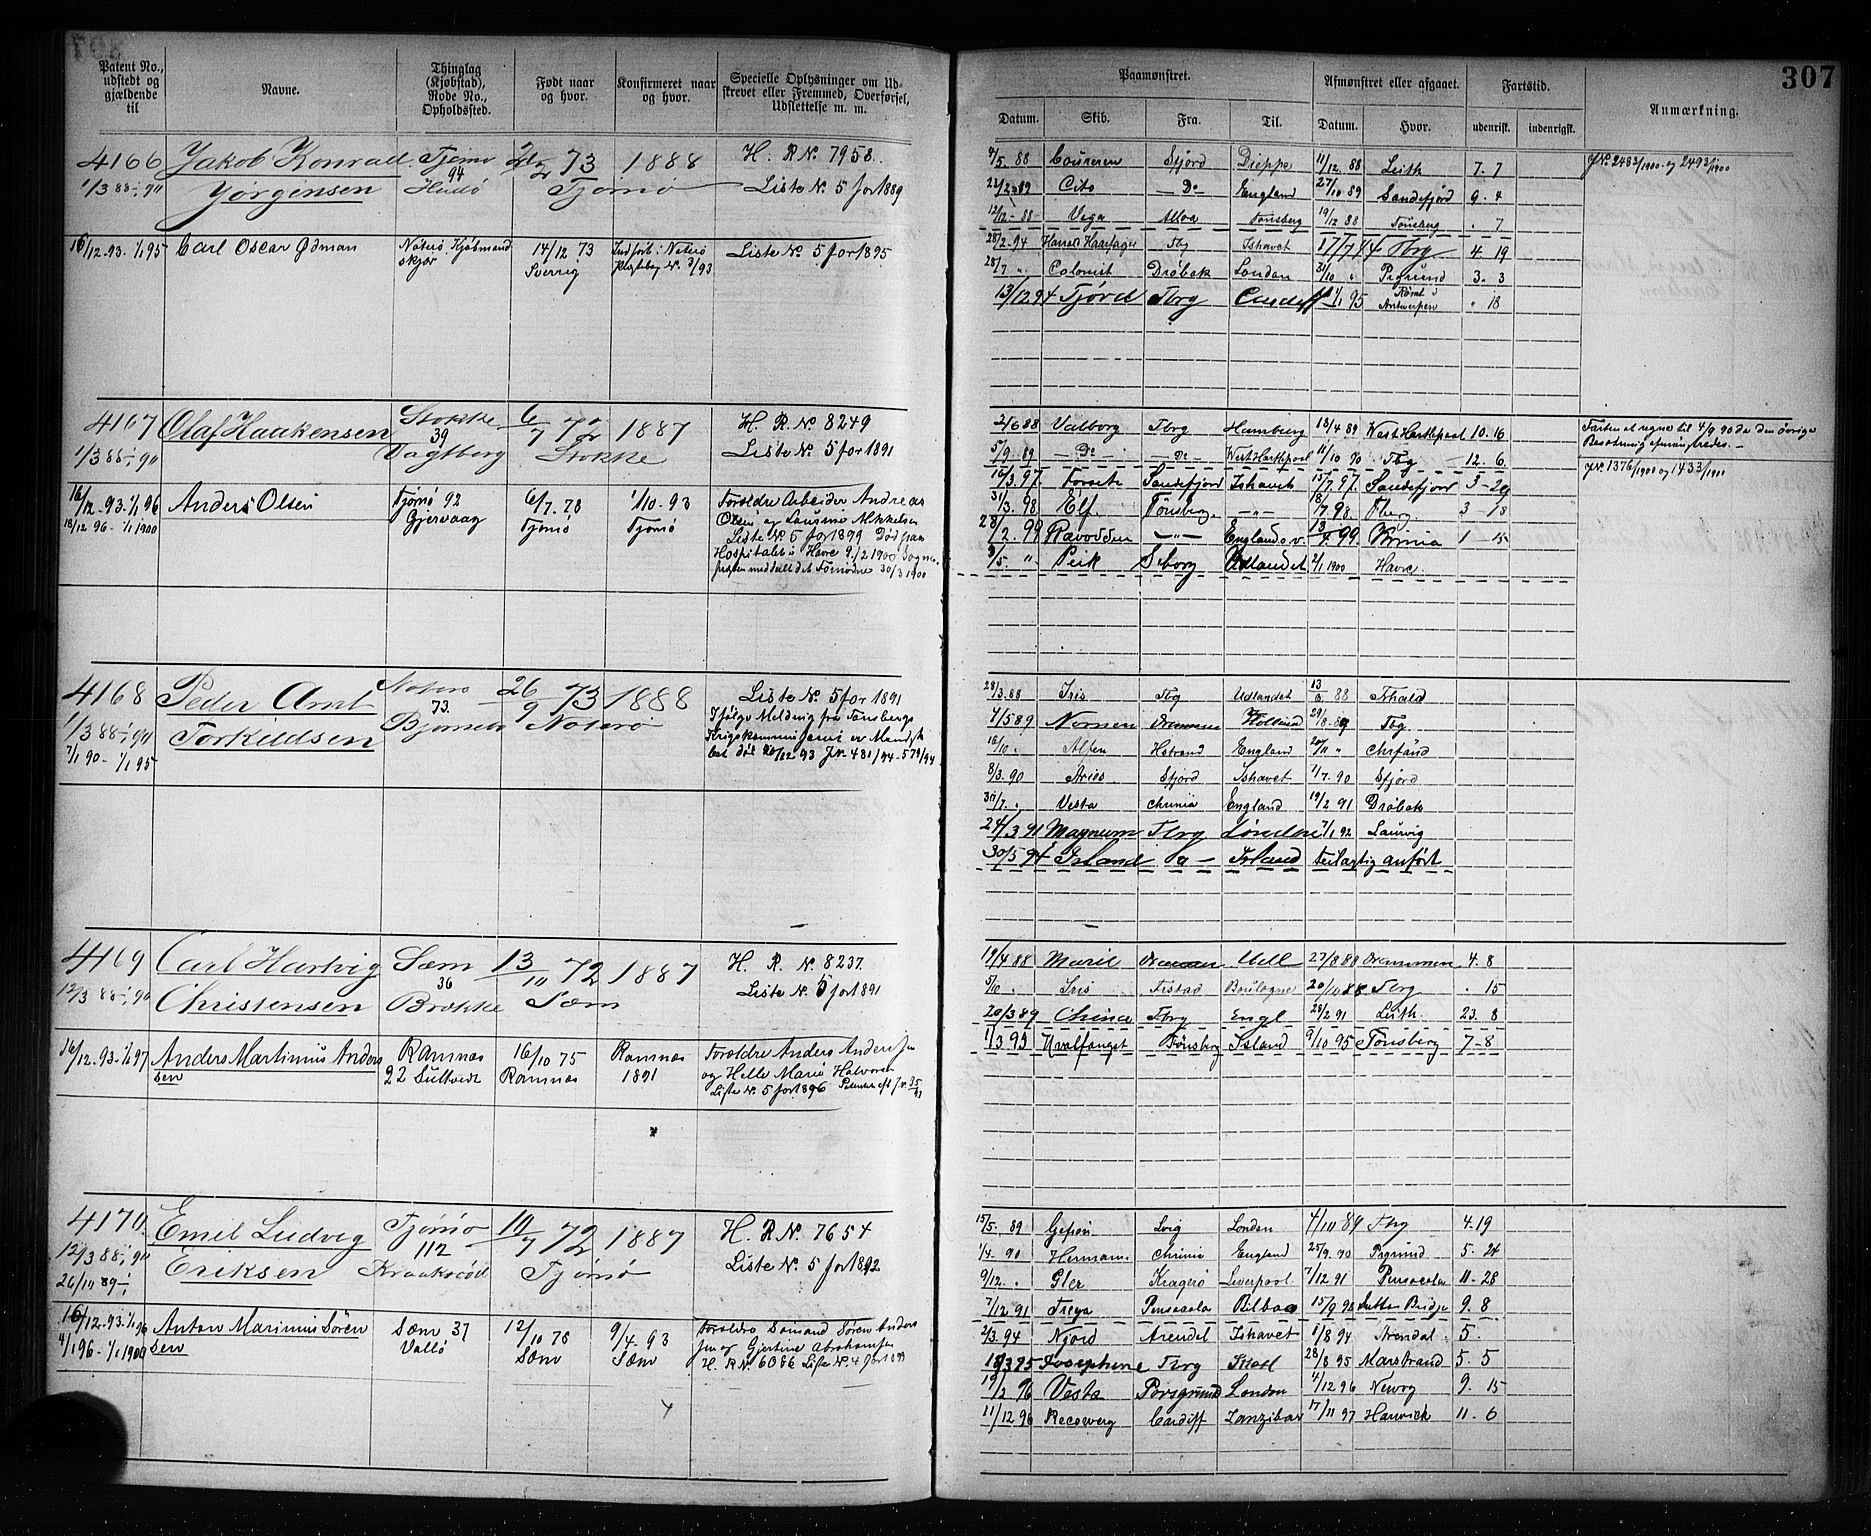 307
Patent No., udstedt og gjældende til
Navne.
Thinglag (Kjøbstad), Rode No., Opholdssted.
Født naar og hvor.
Konfirmeret naar og hvor.
Specielle Oplysninger om Udskrevet eller Fremmed, Overførsel, Udslettelse m. m.
Paamønstret.
Afmønstret eller afgaaet.
Fartstid.
Anmærkning.
Datum. Skib. Fra. Til. Datum. Hvor. udenrikst. indenrigst.
4166 Jakob Konrad Tjømø 73 1888 H. R. N. 7958
1/3 88 Jørgensen 94 Tjømø Liste N. 5 for 1889
16/12 93. 1/1 95 Carl Oscar Ødman Nøterø Kjøbmand skjær 14/12 73 Sverrig Liste N. 5 for 1895
7/5 88 Sfjord Dieppe 11/12 88 Leith 7. 7 J.N. 2483/1900 og 2493/1900
Cito Do England 27/10 89 Sandefjord 9. 4
12/12 88 Vega Alloa Tønsberg 19/12 88 Tønsberg . 7
28/2 94 Harald Haarfager Tbg Ishavet 17/7 94 Tbg 4. 19
28/7 " Colonist Drøbak London 31/10 " Prgrund 3. 3
13/12 94 Fjørd Tbg Cardiff 95 Rømt i Antwerpen " 18
4167 Olaf Haakensen Stokke 6/7 72 1887 H. R. N. 8249
1/3 88 39 Stokke Liste N. 5 for 1891
16/12 93. 1/1 96 Anders Olsen Tjømø 92 6/7. 78 1/10. 93 Forældre Arbeider Andreas
18/12 96 - 1/1 1900 Gjervaag Tjømø Tjømø Olsen og Mikkelsen
Liste N. 5 for 1899 Død paa
Hospitalet i Havre 9/2 1900 Sogne-
præsten meddelt det Fornødne 30/3 1900
2/6 88 Valborg Tbg Hamburg 18/4 89 West Hartlepool 10. 16
5/9 89 Do Do West Hartlepool 11/10 90 Tbg 12. 6
Farten at regne til 4/9 90 da den øvrige
J.N. 1376/1900 og 1433/1900
16/3. 97. Forsete Sandefjord Ishavet 15/7 97. Sandefjord 3-29
31/3. 98 Elf. Tönsberg 18/7. 98. Tberg. 3-18
28/2. 99 Ravodden England o. v. 13/4. 99. Krinia 1-15
3/5. " Peik Udlandet 2/1 1900 Havre.
4168 Peder Arnt Nøterø 26/9 73 1888 Liste N. 5 for 1891
1/3 88 Torkildsen 73 Nøterø Ifølge Melding fra Tønsbergs
7/1 90 - 1/1 95 Krigskommissariat er Mandska-
bet død 20/12 93 J.N. 481/94 - 579/94
28/3. 88 Iris Tbg Udlandet 13/8 88 Fhald
4/5 89 Nornen Drammen Holland 29/8 89 Tbg
18/10 " Alten Hstrand England 20/11 " Chrsand
8/3. 90 Aries Sfjord Ishavet 7/7. 90 Sfjord
30/7. " Vesta Chrinia England 19/2 91 Drøbak
24/3 91 Magnum Tbg London 7/1 92 Laurvig
30/5 94 Island Do Island feilagtig anført
4169 Carl Hartvig Sæm 13/10 72 1887 H. R. N. 8237.
12/3 88 Christensen 36 Brøkke Sæm Liste N. 5 for 1891
16/12. 93. 1/1 97 Anders Martinius Andersen Ramnæs 16/10 75 Ramnæs Forældre Anders Andersen
22 Sultvedt Ramnæs 1891 og Helle Marie Halvorsen
Liste N. 5 for 1896
19/4 88 Marie Drammen Udl 27/8 88 Drammen 4. 8
5/10 " Iris Fistad Boulogne 20/10 88 Tbrg " 15
20/3 89 China Tbrg Engl 28/2 91 Leith. 23. 8
1/3 95 Hvalfanget Tønsberg Island 9/10 95 Tønsberg 7-8
4170 Emil Ludvig Tjømø 10/7 72 1887 H. R. N. 7654
12/3 88 Eriksen 112 Tjømø Liste N. 5 for 1892
26/10 89
16/12. 93. 1/1 96 Anton Marinius Sørensen Sæm 37 12/10 78 9/4. 93 Forældre Sømand Søren Andersen
4/1 96 - 1/1 1900 Vallø Sæm Sæm og Gjertine Abrahamsen
H. R. N. 6086 Liste N. 4 for
15/5. 89 Gefion Lvig London 4/10 89 Tbrg 4. 19
1/4. 90 Herman Chrinia England 25/9. 90 Prgrund 5. 24
9/12. " Gler Kragerø Liverpool 7/12 91 Pensacola 11. 28
7/12 91 Freya Pensacola Bilbao 15/9 93 Sutton Bridge 9. 8
2/3. 94 Njord Arendal Ishavet 1/8 94 Arendal 5.
1/3 95 Josephine Tbrg 28/8 95 Marstrand 5. 5
19/2 96 Vesta Porsgrund London 4/12 96 Newry 9. 15
11/12 96 Recovery Cardiff Zanzibar 17/11 97 Harwich 11. 6